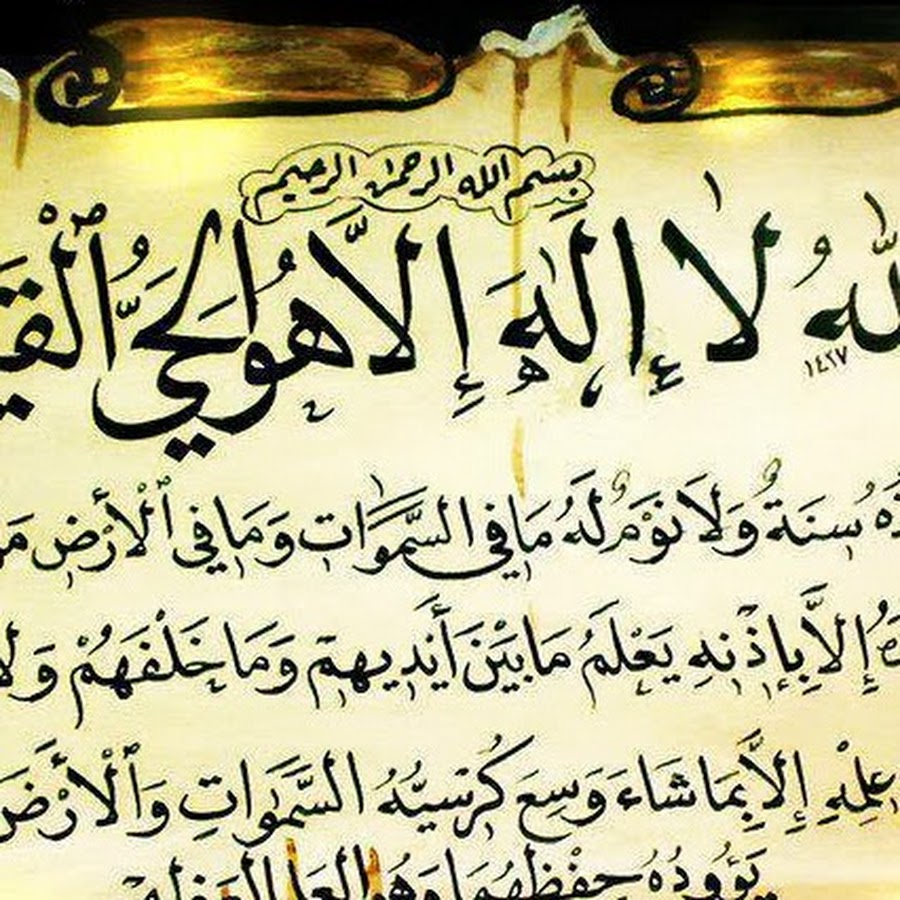 بسم الله الرحمن الرحيم
لَا إِلَٰهَ إِلَّا هُوَ الْحَيُّ
١٤٢٧
سِنَةٌ وَلَا نَوْمٌ لَهُ مَا فِي السَّمَوَاتِ وَمَا فِي ٱلْأَرْضِ
إِلَّا بِإِذْنِهِ يَعْلَمُ مَا بَيْنَ أَيْدِيهِمْ وَمَا خَلْفَهُمْ
عِلْمِهِ إِلَّا بِمَا شَاءَ وَسِعَ كُرْسِيُّهُ السَّمَوَاتِ وَٱلْأَرْضَ
يَؤُودُهُ حِفْظُهُمَا وَهُوَ الْعَلِيُّ الْعَظِيمُ